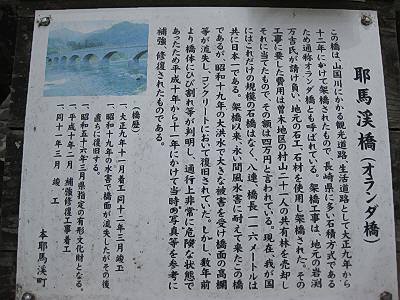 耶馬渓橋（オランダ橋）
この橋は、山国川にかかる観光道路、生活道路として大正九年から
十二年にかけて架橋されたもので、長崎県に多い石積方式である
ため通称オランダ橋とも呼ばれている。架橋工事は、地元の岩渕
万吉氏が請け負い、地元の石工、石材を使用し架橋された。その
工事に要した費用は曽木地区の村山二十一人の共有林を売却し
それに当てたもので、その額は四万円と言われている。現在、我が国
にはこれだけの規模の石橋はなく、八連、橋長一一六メートルは
共に日本一である。架橋以来、永い間風水害に耐えて来たこの橋
であるが、昭和十九年の大洪水で大きな被害を受け橋面の高欄
等が流失し、コンクリートにおいて復旧されていた。しかし、数年前
より橋体にひび割れ等が判明し、通行上非常に危険な状態で
あったため平成十年から十一年にかけて当時の写真等を参考に
補強、修復されたものである。
（橋歴）
一、大正九年十一月着工 同十二年三月 竣工
一、昭和十九年の水害で橋面が流失したがその後
直ちに復旧する。
一、昭和五十六年三月県指定の有形文化財となる。
一、平成十年 補強修復工事着工
一、同十一年三月 竣工
本耶馬渓町